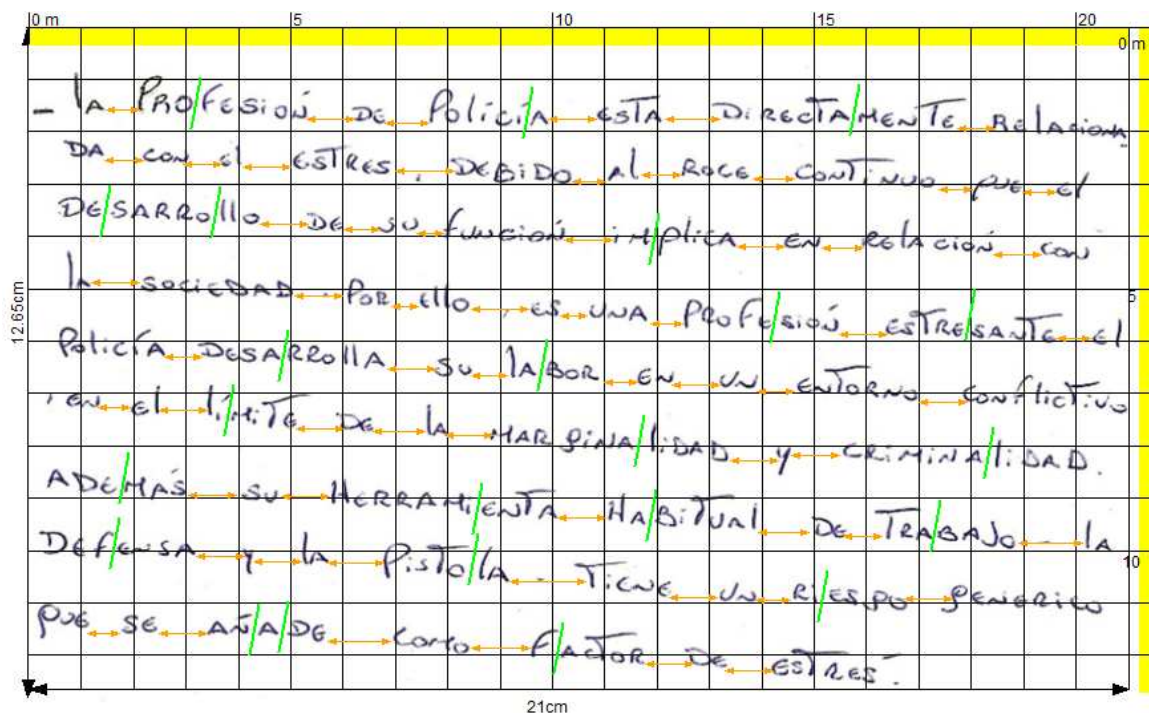 0 m 5 10 15 20
0 m
- la PROFESIÓN DE Policía ESTA DIRECTAMENTE RELACIONA
DA CON El ESTRES, DEBIDO Al ROCE CONTINUO que El
DESARROllo DE SU fUNCIÓN iMplicA EN RELACIÓN CON
la SOCIEDAD. POR Ello, ES UNA PROFESIÓN ESTRESANTE El
5
12.65cm
Policía DESARROllA SU lABOR EN UN ENTORNO CONflicTivo
, EN El líMiTE DE lA MARgiNAliDAD y CRiMiNAliDAD.
ADEMÁS SU HERRAMiENTA HABiTUAl DE TRABAJO - la
DEfENSA y la PiSTOlA - TiENE UN RiESgO gENERiCO
10
qUE SE AÑADE COMO FACTOR DE ESTRES.
21cm